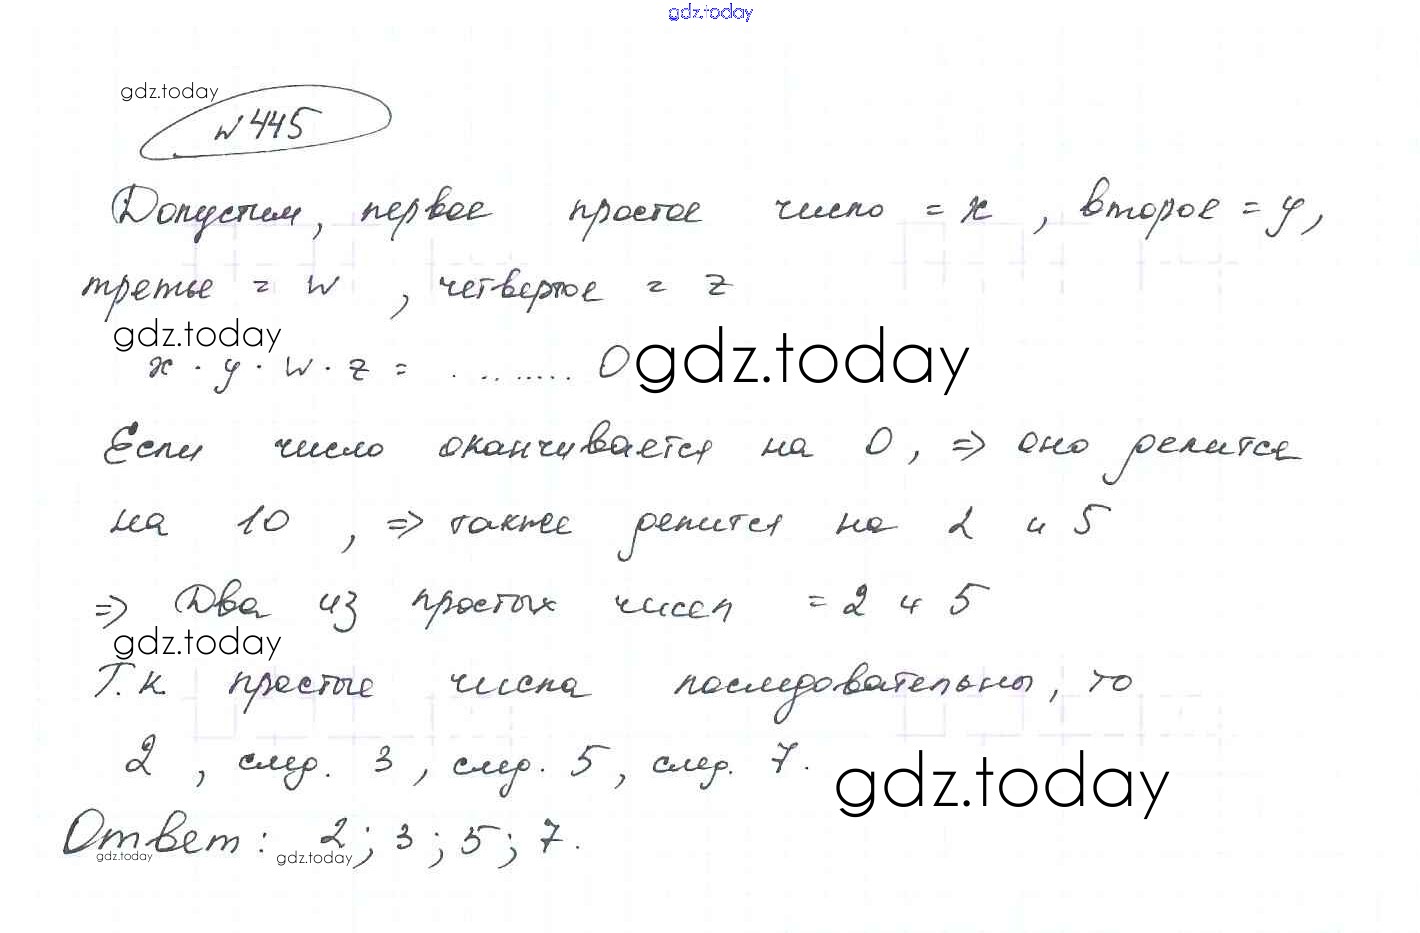 gdz.today
gdz.today
№445
Допустим, первое простое число = x, второе = y,
третье = w, четвертое = z
gdz.today
x · y · w · z = ......... 0
gdz.today
Если число оканчивается на 0, => оно делится
на 10, => также делится на 2 и 5
=> Два из простых чисел = 2 и 5
gdz.today
Т.к. простые числа последовательны, то
2, след. 3, след. 5, след. 7.
gdz.today
Ответ: 2; 3; 5; 7.
gdz.today
gdz.today